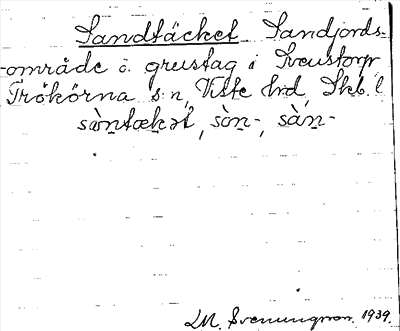 Sandtäcket Sandjords-
område o. grustag i Sveustorp
Trökörna s:n, Viste hrd, Skb. l
sàntækət, sòn-, sàn-
LM. Svenungsson. 1939.